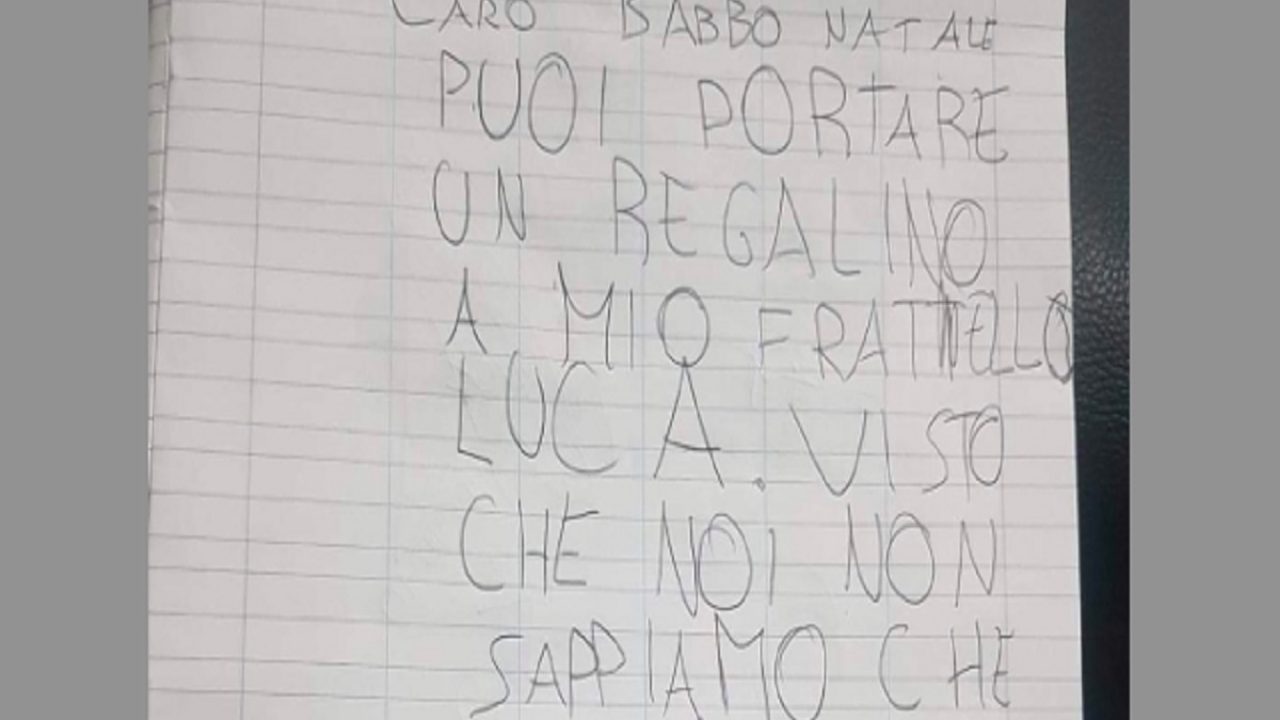 CARO BABBO NATALE
PUOI PORTARE
UN REGALINO
A MIO FRATTELLO
LUCA. VISTO
CHE NOI NON
SAPPIAMO CHE